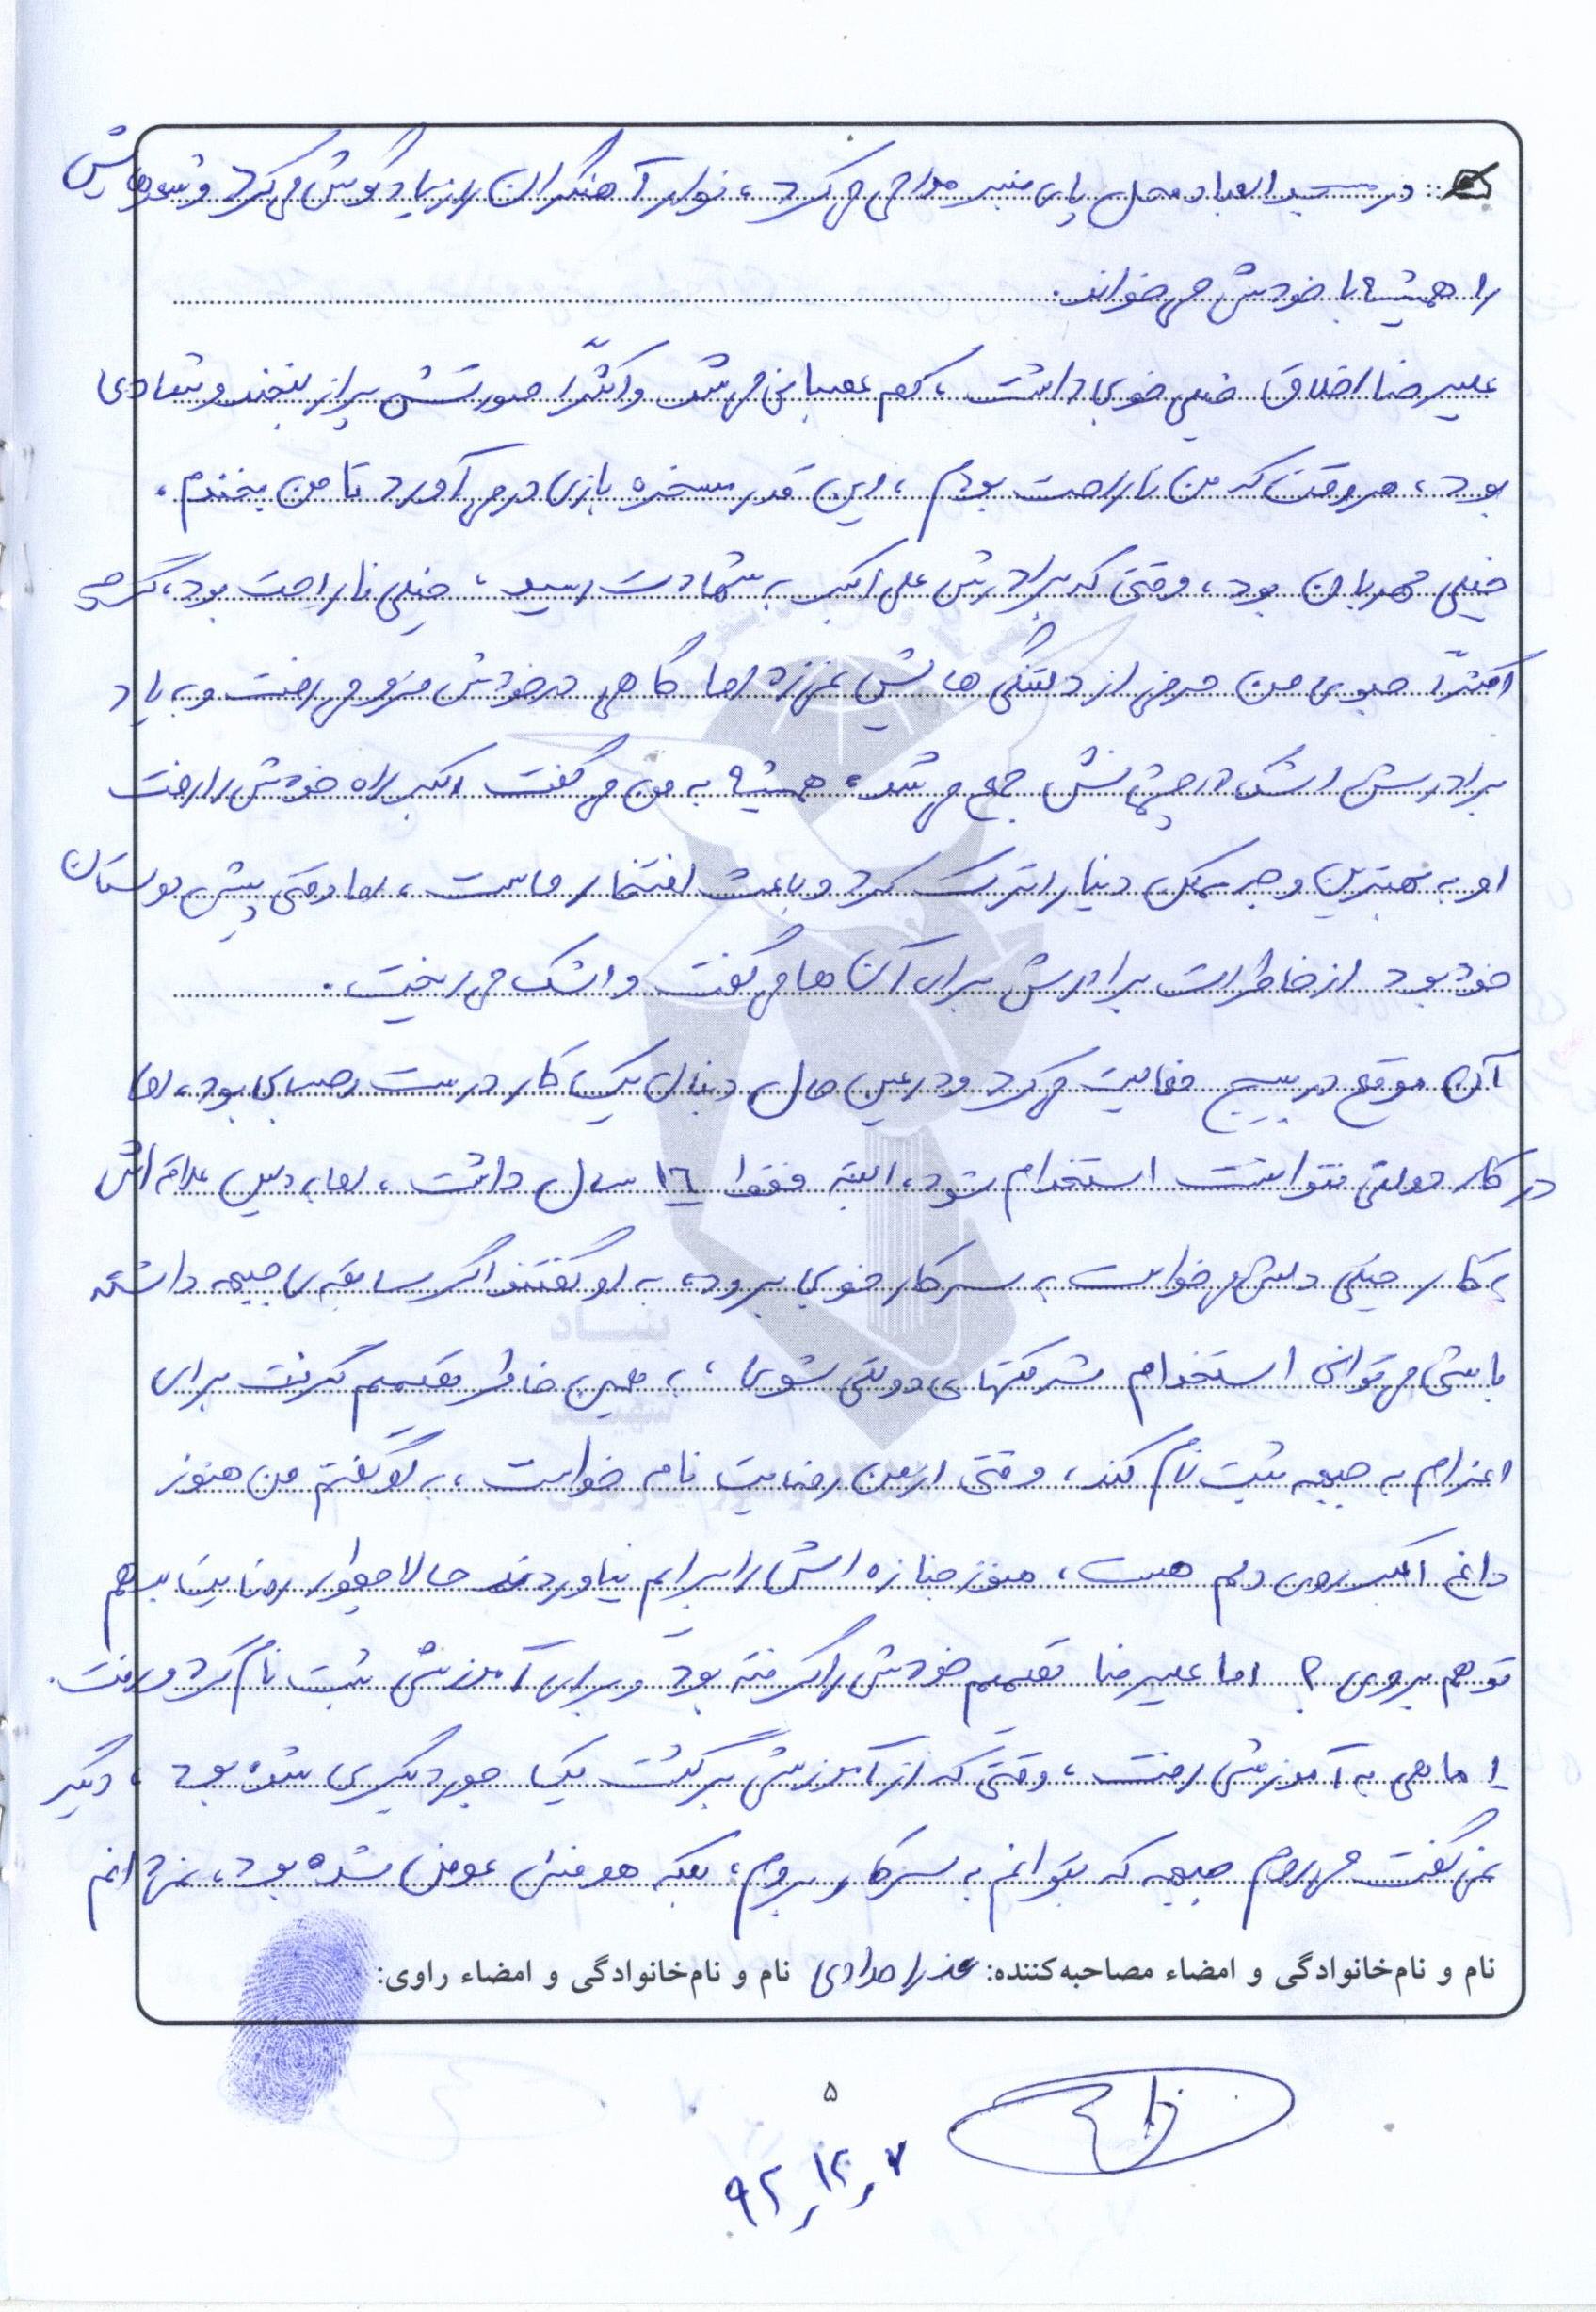 در مسجد العباد محل پای منبر مداحی می‌کرد، نوار آهنگران را زیاد گوش می‌کرد و شعرهایش
را همیشه با خودش می‌خواند.
علیرضا اخلاق خیلی خوبی داشت، کم عصبانی می‌شد و اکثراً صورتش پر از لبخند و شادی
بود، هر وقت که من ناراحت بودم، این قدر مسخره بازی در می‌آورد تا من بخندم.
خیلی مهربان بود، وقتی که برادرش علی اکبر به شهادت رسید، خیلی ناراحت بود، گرچه
اکثراً جلوی من حرفی از دلتنگی هایش نمی‌زد اما گاهی در خودش فرو می‌رفت و به یاد
برادرش اشک در چشمانش جمع می‌شد، همیشه به من می‌گفت اکبر راه خودش را رفت
او به بهترین وجه ممکن دنیا را ترک کرد و باعث افتخار ماست، اما وقتی پیش دوستان
خود بود از خاطرات برادرش برای آن ها می‌گفت و اشک می‌ریخت.
آن موقع در بسیج فعالیت می‌کرد و در عین حال دنبال یک کار درست حسابی بود، اما
در کار دولتی نتوانست استخدام شود، البته فقط ١٦ سال داشت، اما به دلیل علاقه اش
به کار خیلی دلش می‌خواست به سر کار خوبی برود، به او گفتند اگر سابقه ی جبهه داشته
باشی می‌توانی استخدام شرکتهای دولتی شوی، به همین خاطر تصمیم گرفت برای
اعزام به جبهه ثبت نام کند، وقتی از من رضایت نامه خواست، به او گفتم من هنوز
داغ اکبر روی دلم هست، هنوز جنازه اش را برایم نیاوردند حالا چطور رضایت بدهم
تو هم بروی؟ اما علیرضا تصمیم خودش را گرفته بود و برای آموزش ثبت نام کرد و رفت.
١ ماهی به آموزش رفت، وقتی که از آموزش برگشت یک جور دیگری شده بود، دیگر
نمی‌گفت می‌روم جبهه که بتوانم به سر کار بروم، بلکه هدفش عوض شده بود، نمی‌دانم
نام و نام‌خانوادگی و امضاء مصاحبه‌کننده: عذرا مرادی نام و نام‌خانوادگی و امضاء راوی:
۵
۷ر۱۲ر۹۲